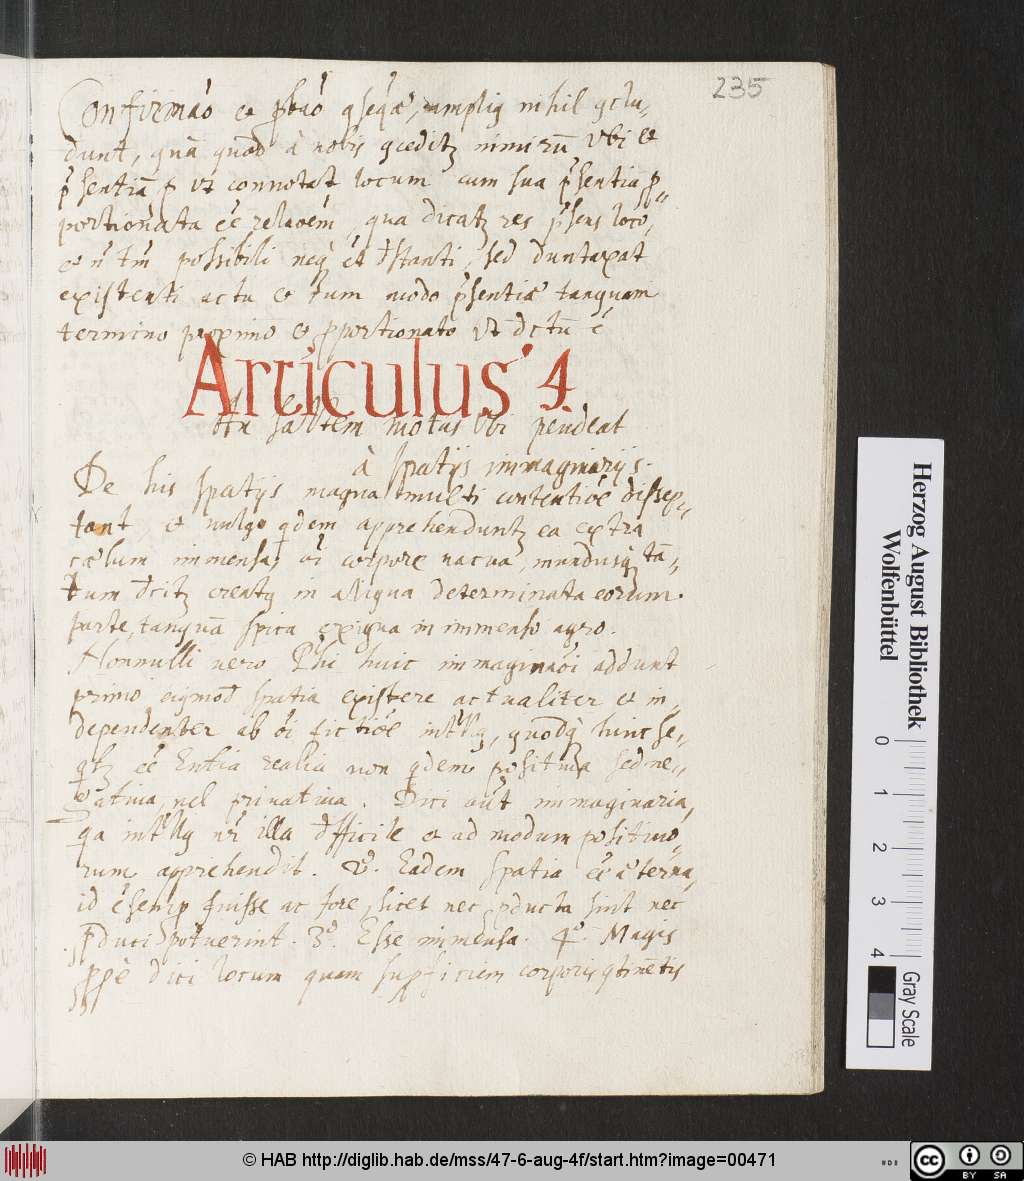 235
Confirmaó et pbaó qseqa, amplig nihil gclu-
dunt, quã quod à nobis gceditz nimirũ vbi et
psentiã p vt connotat locum cum sua psentia p-
portionata eé relaoém, qua dicatz res psens loco,
et ñ tm possibili neq ét dstanti, sed duntaxat
existenti actu et rum modo psentiæ tanquam
termino proximo et pportionato vt dctũ é
Articulus 4
An saltem motus Vbi pendeat
à spatijs immaginarijs.
De his spatijs magna multi contentioé dissep-
tant, et vulgo qdem apprehenduntz ea extra
cælum immensa, oi corpore vacua, mundusq tã-
tum dcitz creatg in aliqua determinata eorum
parte, tanquã spica exigua in immenso agro.
Nonnulli vero Phi huic immaginaoi addunt
primo eigmod spatia existere actualiter et in-
dependenter ab oi fictioé intllg, quodq hinc se-
qtz eé Entia realia non qdem positiva sed ne-
gativa, vel privativa. Dici aut immaginaria,
qa intllg nr illa dfficile et ad modum positivo-
rum apprehendit. 2º. Eadem spatia eé æterna,
id é semp fuisse ac fore, licet nec pducta sint nec
pduci potuerint. 3º. Esse immensa. 4º. Magis
ppè dici locum quam supficiem corporis qtinẽtis
Herzog August Bibliothek
Wolfenbüttel
0 1 2 3 4
Gray Scale
© HAB http://diglib.hab.de/mss/47-6-aug-4f/start.htm?image=00471
cc BY SA